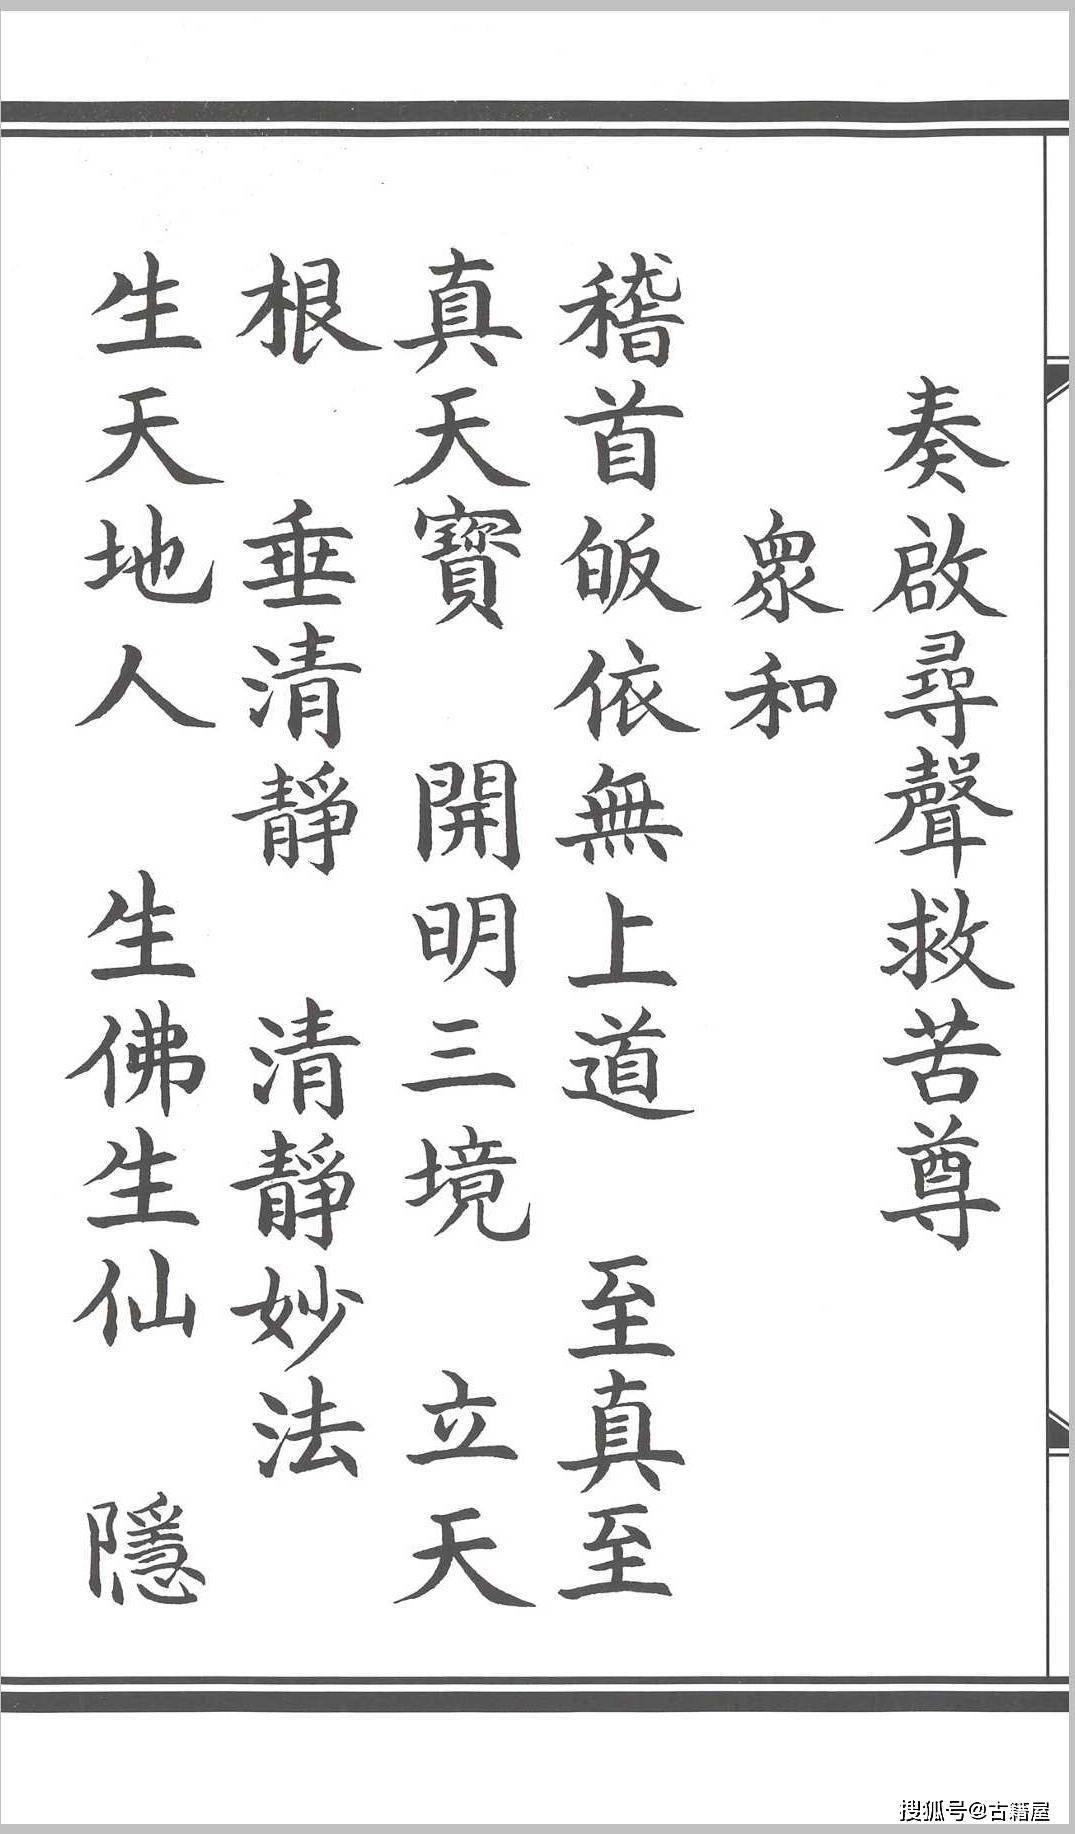 奏啟尋聲救苦尊
眾和
稽首皈依無上道　至真至
真天寶　開明三境　立天
根　垂清靜　清靜妙法
生天地人　生佛生仙　隱
搜狐号@古籍屋